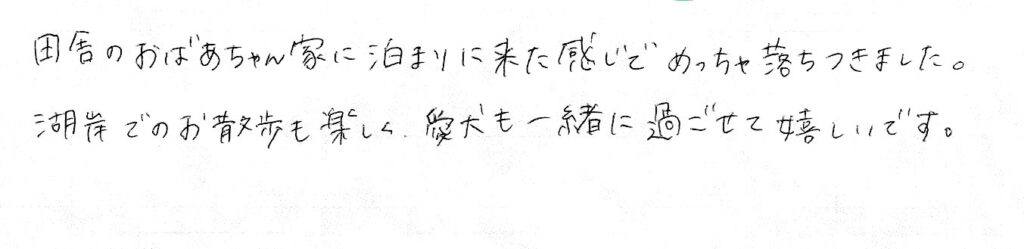 田舎のおばあちゃん家に泊まりに来た感じでめっちゃ落ちつきました。
湖岸でのお散歩も楽しく、愛犬も一緒に過ごせて嬉しいです。